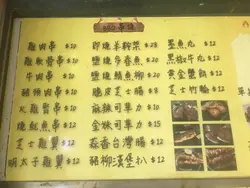 雞肉串 $10
雞軟骨串 $10
牛肉串 $10
豬頸肉串 $10
火雞腎串 $10
燒魷魚串 $12
芝士雞翼 $12
明太子雞翼 $12
即燒羊鞍架 $28
鹽燒多春魚 $12
鹽燒鯖魚柳 $12
脆皮芝士腸 $12
麻辣司華力 $12
金妹司華力 $15
蒜香台灣腸 $12
豬柳漢堡扒 $12
墨魚丸 $12
黑椒牛丸 $12
黃金蟹餅 $12
芝士竹輪 $12